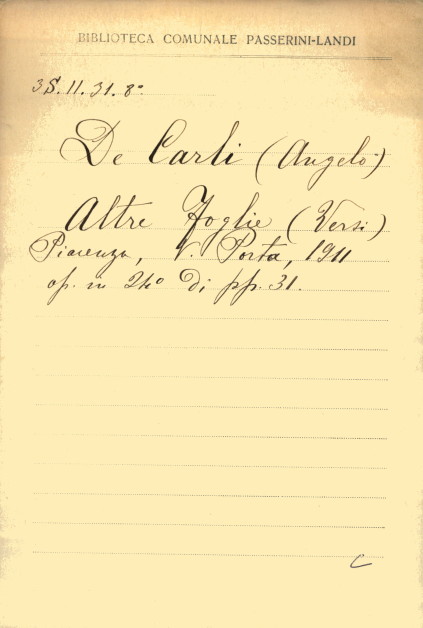 BIBLIOTECA COMUNALE PASSERINI-LANDI
3S.11.31.8°
De Carli (Angelo)
Altre Foglie (Versi)
Piacenza, V. Porta, 1911
op. in 24° di pp. 31.
C